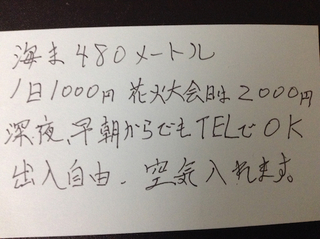 海まで480メートル
1日1000円 花火大会日は2000円
深夜、早朝からでもTELでOK
出入自由、空気入れます。